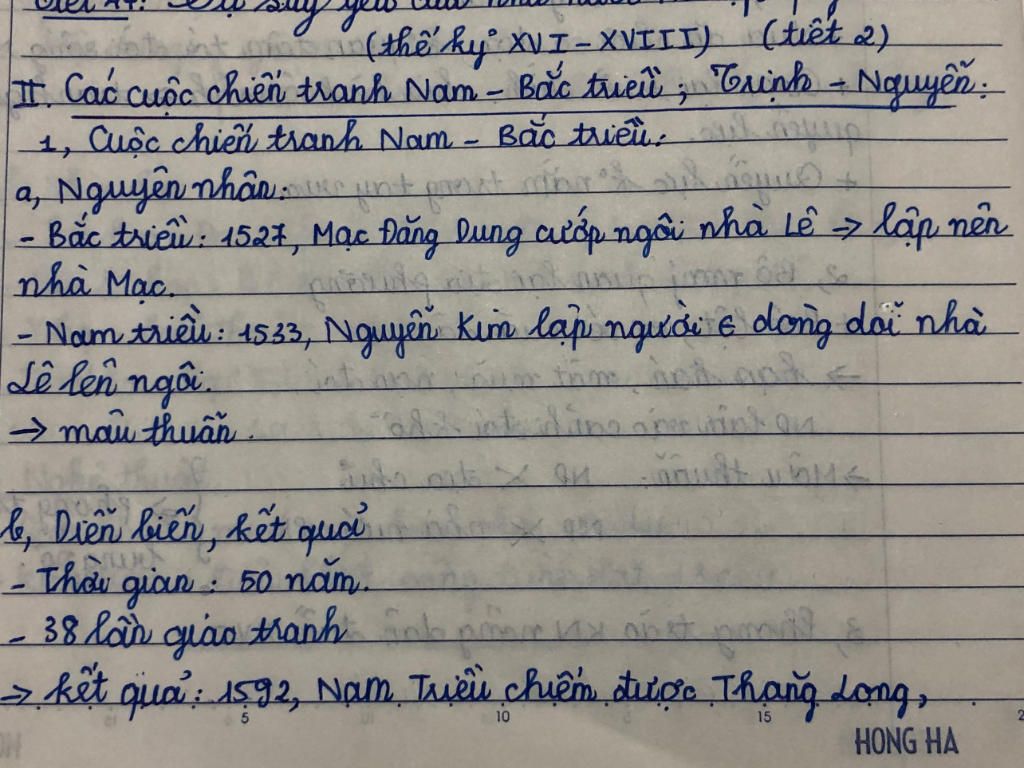 (thế kỷ XVI - XVIII) (tiết 2)
II. Các cuộc chiến tranh Nam - Bắc triều; Trịnh - Nguyễn:
1, Cuộc chiến tranh Nam - Bắc triều:
a, Nguyên nhân:
- Bắc triều: 1527, Mạc Đăng Dung cướp ngôi nhà Lê → lập nên
nhà Mạc.
- Nam triều: 1533, Nguyễn Kim lập người ∈ dòng dõi nhà
Lê lên ngôi.
→ mâu thuẫn.
b, Diễn biến, kết quả
- Thời gian: 50 năm.
- 38 lần giao tranh
→ kết quả: 1592, Nam Triều chiếm được Thăng Long,
5 10 15 2
HONG HA